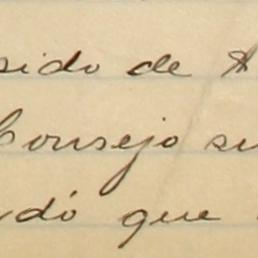 sido de
Consejo su
dó que